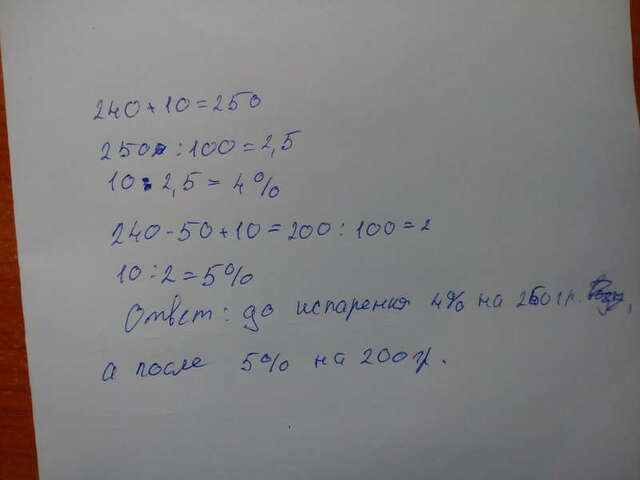 240+10=250
250:100=2,5
10:2,5=4%
240-50+10=200:100=2
10:2=5%
Ответ: до испарения 4% на 250гр.
а после 5% на 200гр.